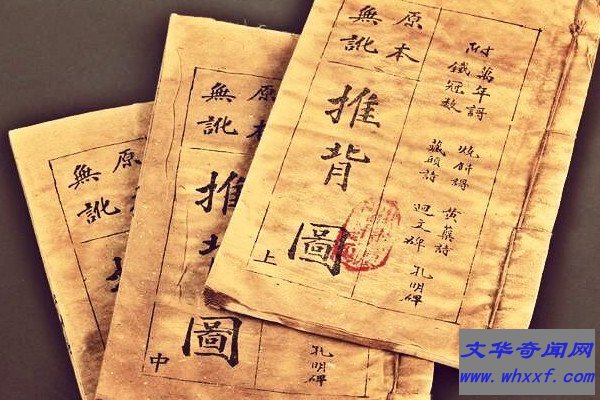 原本
無訛
推背圖
上
附萬年謌
鐵冠数
燒餅謌
藏頭詩
黄蘗詩
迴文碑
孔明碑
原本
無訛
推背圖
中
孔明碑
原本
無訛
文华奇闻网
www.whxxf.com